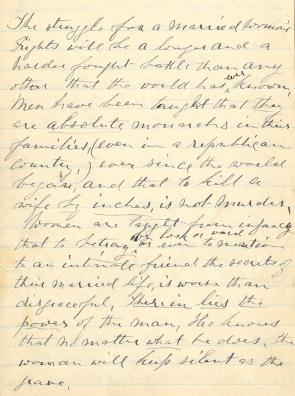 The struggle for a married woman's
rights will be a longer and a
harder fought battle than any
other that the world has ever known.
Men have been taught that they
are absolute monarchs in their
families, (even in a republican
country,) ever since the world
began, and that to kill a
wife by inches, is not murder.
Women are taught from infancy
that to betray by look or word or even to mention
to an intimate friend the secrets of
their married life, is worse than
disgraceful. Therein lies the
power of the man. He knows
that no matter what he does, the
woman will keep silent as the
grave.